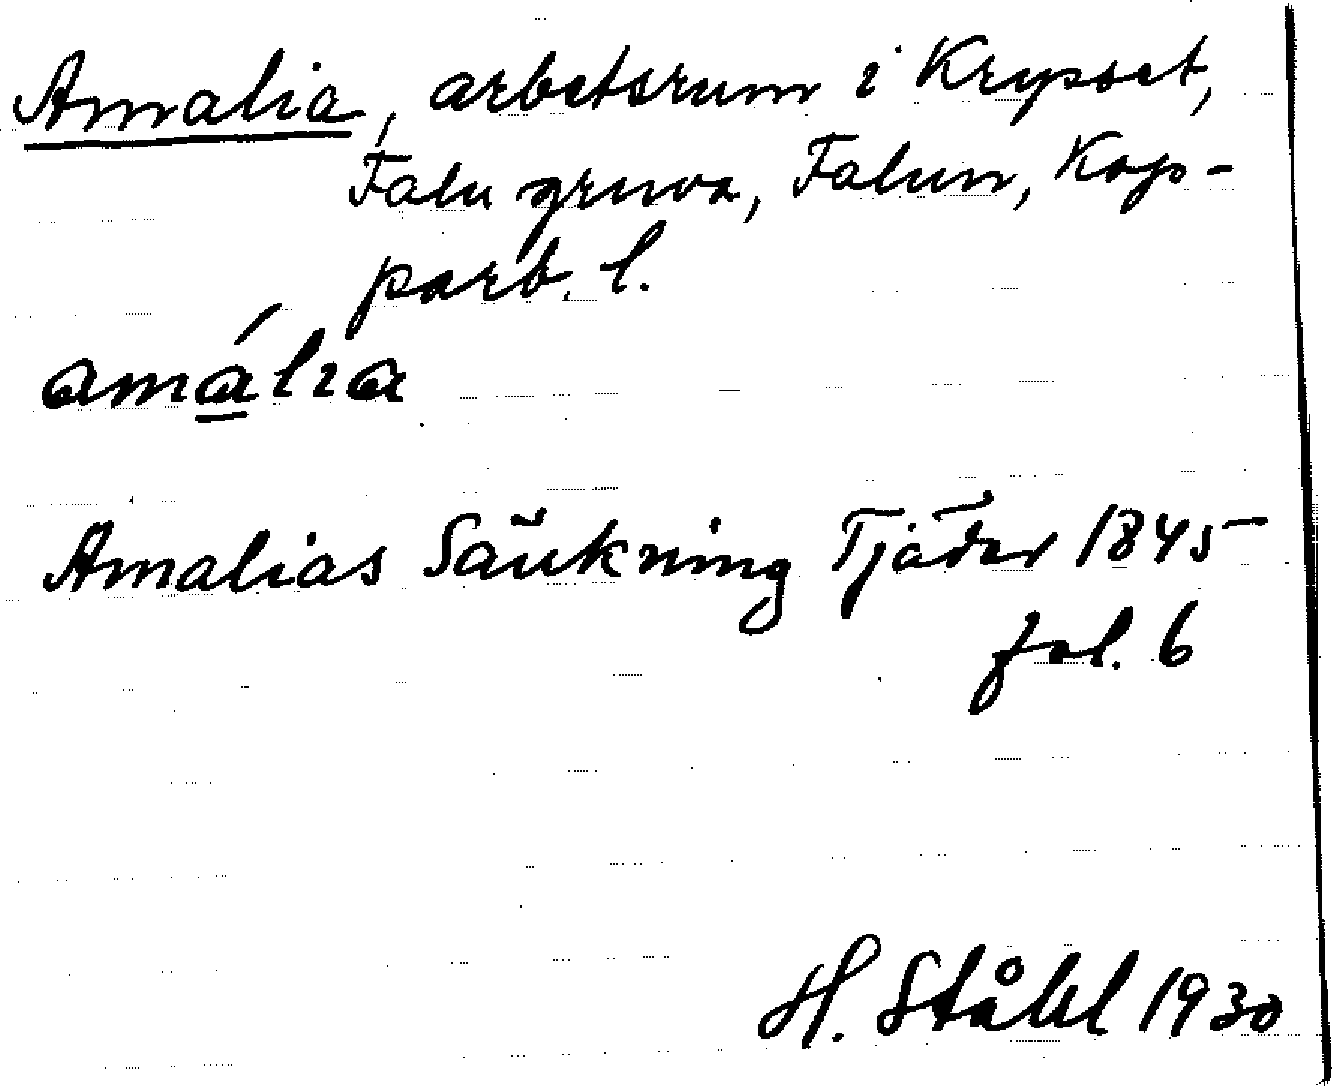 Amalia, arbetsrum i Krysset,
Falu gruva, Falun, Kop-
parb. l.
amália
Amalias Säukning Tjäder 1845
fol. 6
H. Ståhl 1930